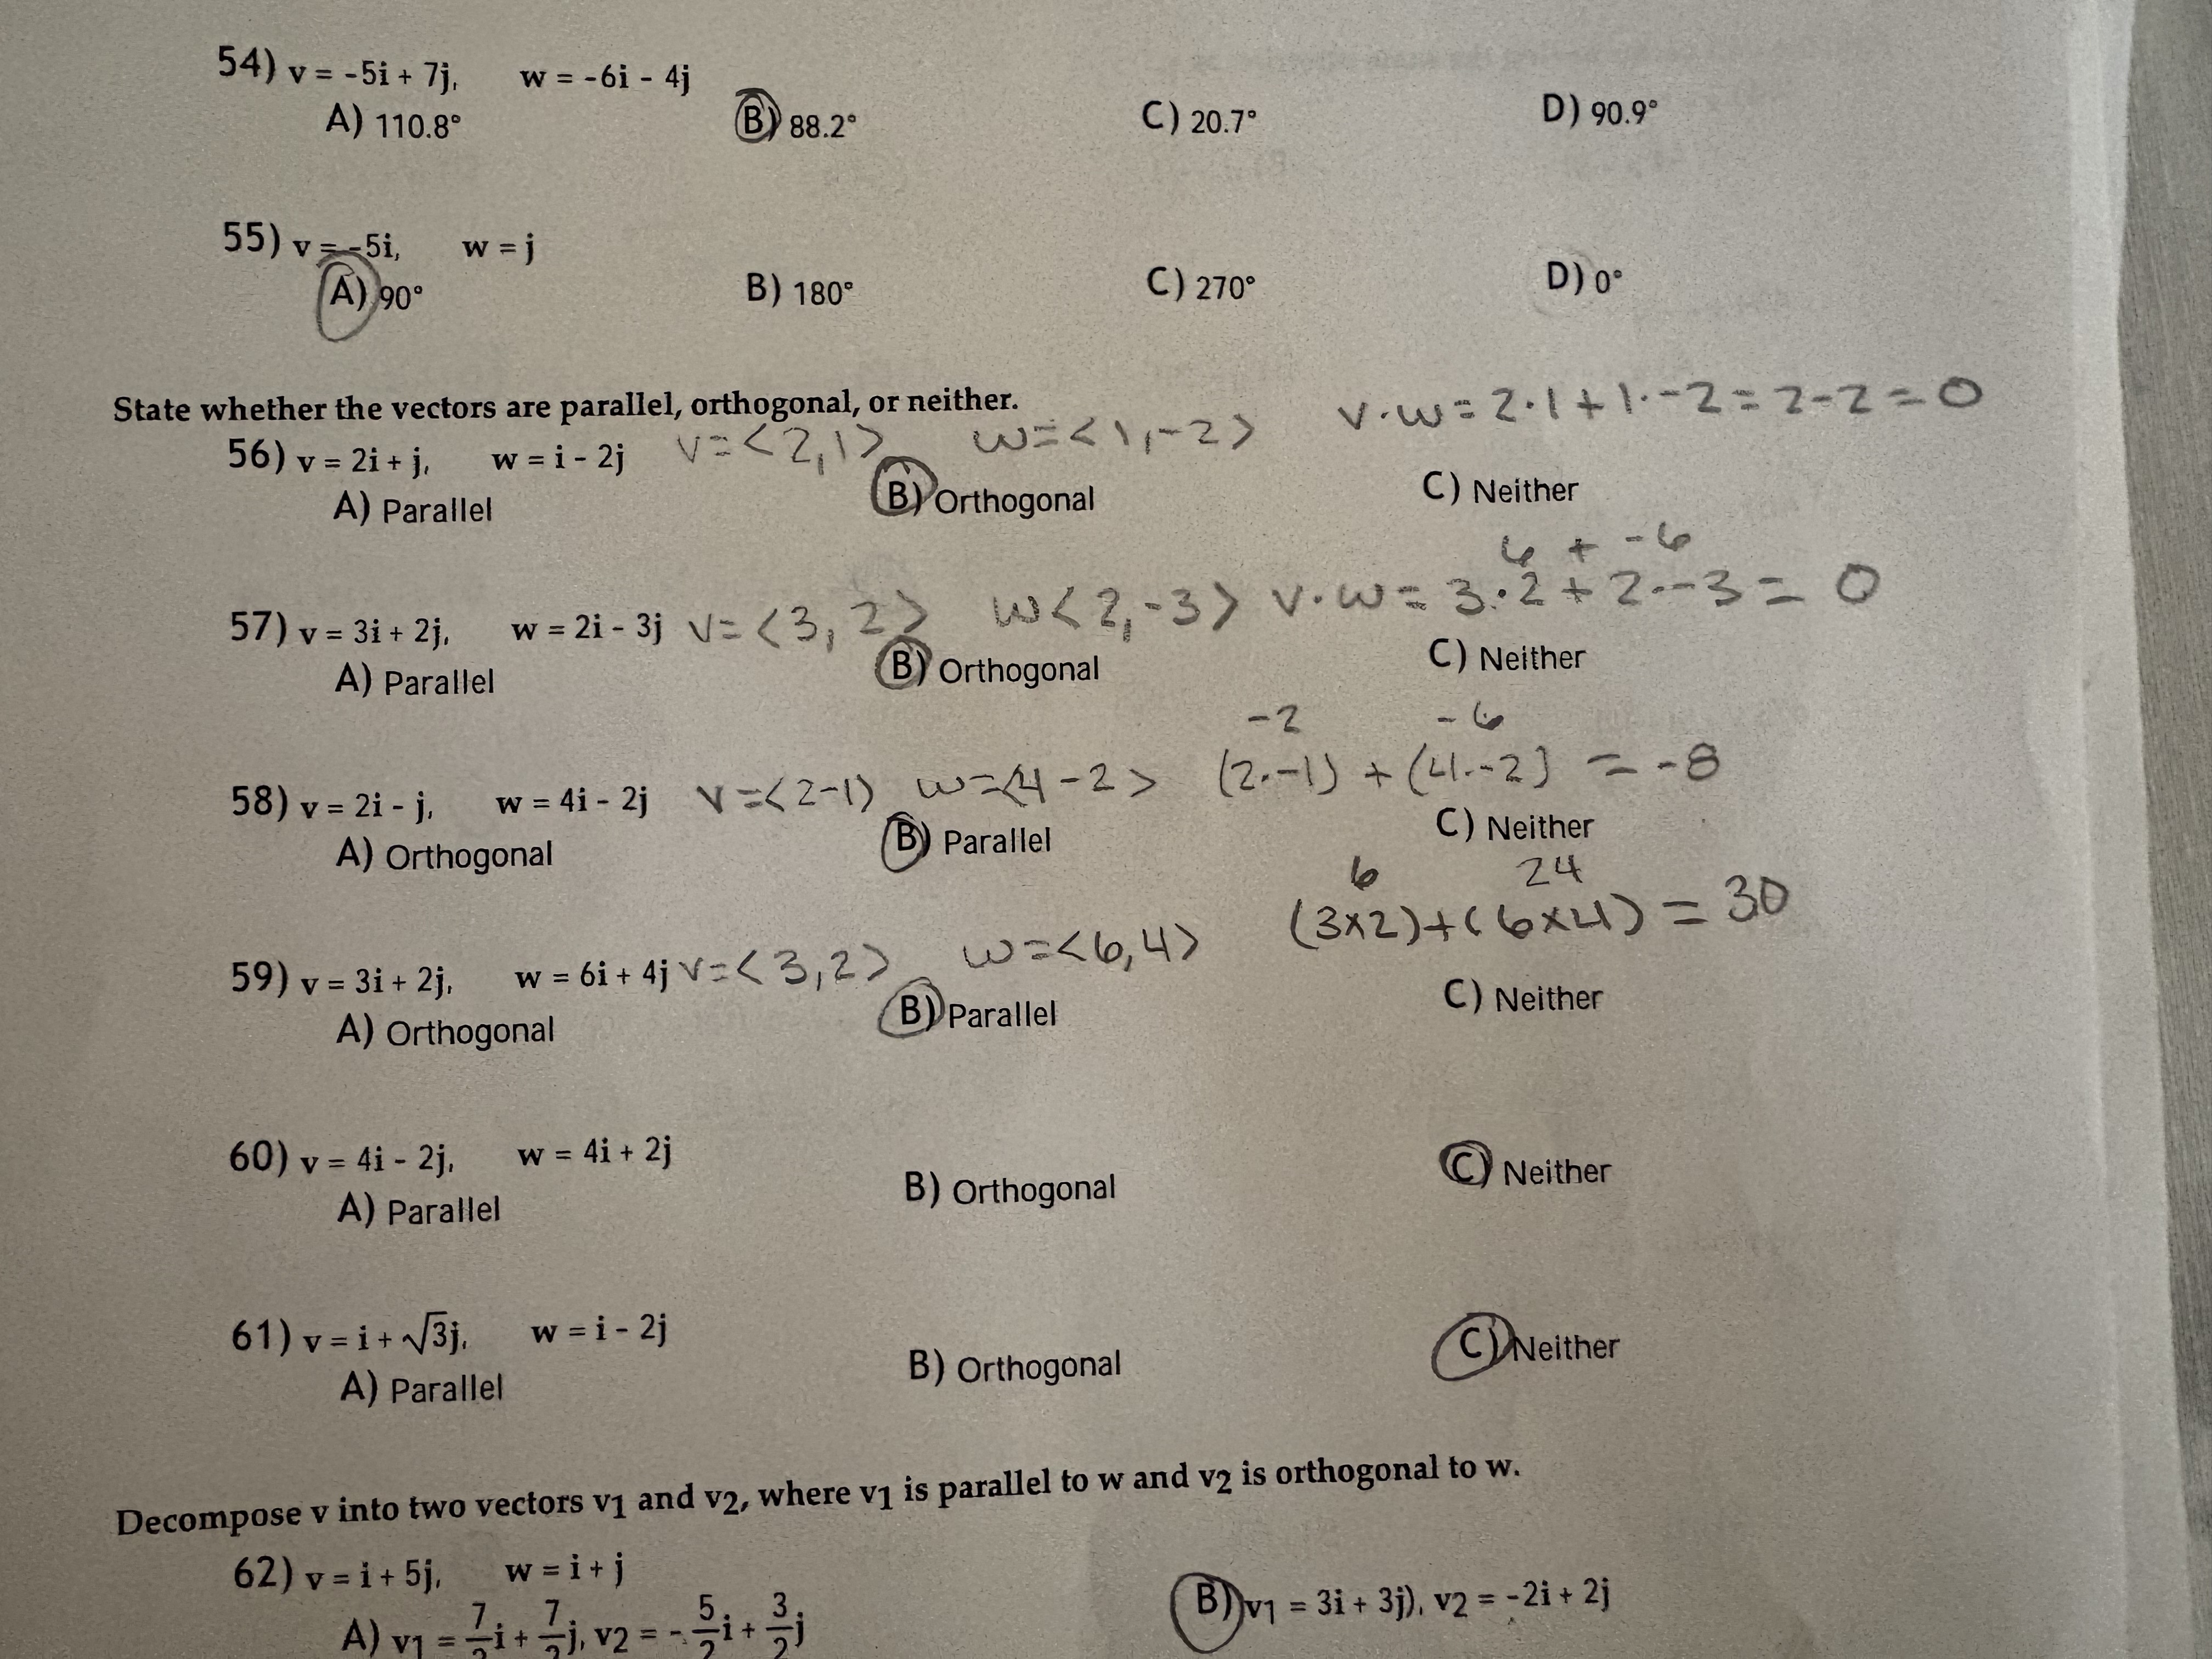 54) v = -5i + 7j, w = -6i - 4j
A) 110.8° B) 88.2° C) 20.7° D) 90.9°
55) v = -5i, w = j
A) 90° B) 180° C) 270° D) 0°
State whether the vectors are parallel, orthogonal, or neither.
v·w = 2·1 + 1·-2 = 2-2 = 0
56) v = 2i + j, w = i - 2j v=<2,1> w=<1,-2>
A) Parallel B) Orthogonal C) Neither
6 + -6
57) v = 3i + 2j, w = 2i - 3j v=<3, 2> w<2,-3> v·w = 3·2 + 2·-3 = 0
A) Parallel B) Orthogonal C) Neither
-2 -6
58) v = 2i - j, w = 4i - 2j v=<2-1> w=<4-2> (2·-1) + (4·-2) = -8
A) Orthogonal B) Parallel C) Neither
6 24
(3x2)+(6x4) = 30
59) v = 3i + 2j, w = 6i + 4j v=<3,2> w=<6,4>
A) Orthogonal B) Parallel C) Neither
60) v = 4i - 2j, w = 4i + 2j
A) Parallel B) Orthogonal C) Neither
61) v = i + √3j, w = i - 2j
A) Parallel B) Orthogonal C) Neither
Decompose v into two vectors v1 and v2, where v1 is parallel to w and v2 is orthogonal to w.
62) v = i + 5j, w = i + j
A) v1 = 7/2i + 7/2j, v2 = -5/2i + 3/2j B) v1 = 3i + 3j), v2 = -2i + 2j